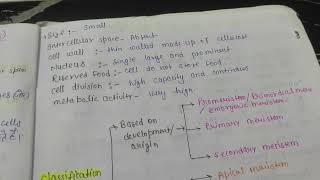 Size :- Small
Intercellular space - Absent
cell wall :- thin walled made up of cellulose
nucleus :- Single large and prominent
Reserved food :- cell do not store food
cell division :- high capacity and continuous
metabolic activity - Very high
Based on
development/
origin
Promeristem/Primordial meristem/
embryonic meristem
Primary meristem
Secondary meristem
Apical meristem
Classification